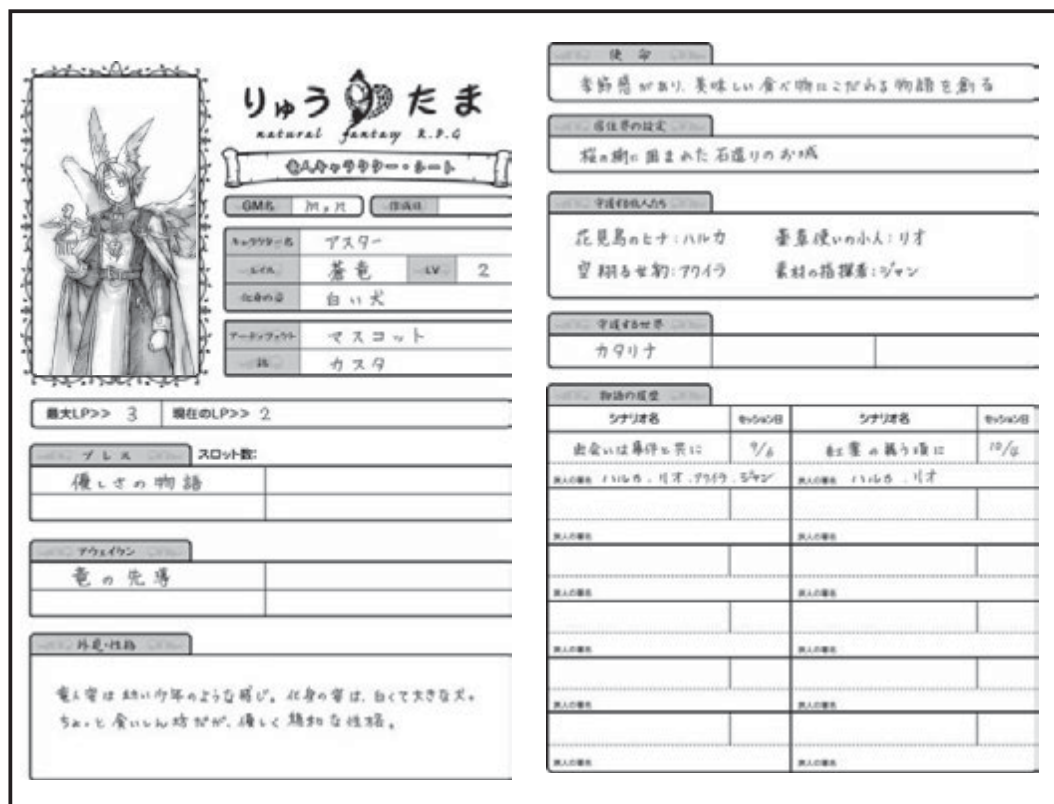 りゅうたま
natural fantasy R.P.G
竜人キャラクター・シート
GM名
作成日
キャラクター名 アスター
ルイス 蒼竜 LV 2
化身の姿 白い犬
アーティファクト マスコット
カスタ
最大LP>> 3 現在のLP>> 2
ブレス スロット数:
優しさの物語
アウェイクン
竜の先導
外見・性格
竜人姿は幼い少年のような感じ。化身の姿は、白くて大きな犬。
ちょっと食いしん坊だが、優しく温和な性格。
使命
季節感があり、美味しい食べ物にこだわる物語を創る
居住界の設定
桜の樹に囲まれた石造りのお城
守護する旅人たち
花見鳥のヒナ:ハルカ 薬草使いの小人:リオ
空翔る世豹:アワイラ 素材の指揮者:ジャン
守護する世界
カタリナ
物語の履歴
シナリオ名 セッション日 シナリオ名 セッション日
出会いは事件と共に 9/6 紅葉の舞う頃に 10/4
旅人の署名 ハルカ、リオ、アワイラ、ジャン 旅人の署名 ハルカ、リオ
旅人の署名 旅人の署名
旅人の署名 旅人の署名
旅人の署名 旅人の署名
旅人の署名 旅人の署名
旅人の署名 旅人の署名